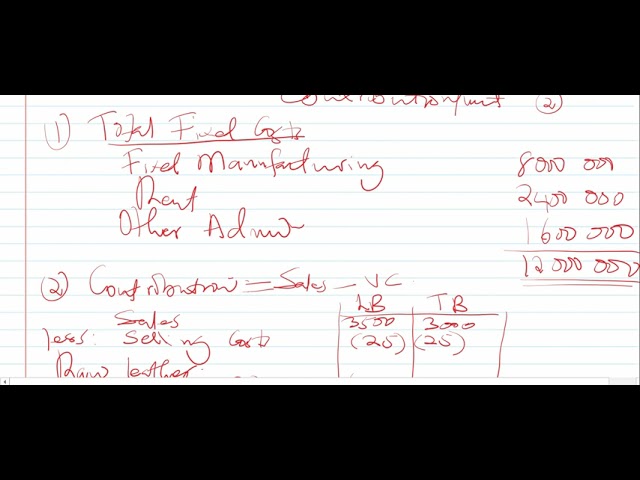 Contribution/unit (2)
(1) Total Fixed Costs
Fixed Manufacturing 8000 000
Rent 2400 000
Other Admin 1600 000
12000 000
(2) Contribution = Sales - VC
LB TB
Sales 3500 3000
less: Selling Costs (25) (25)
Raw leather: